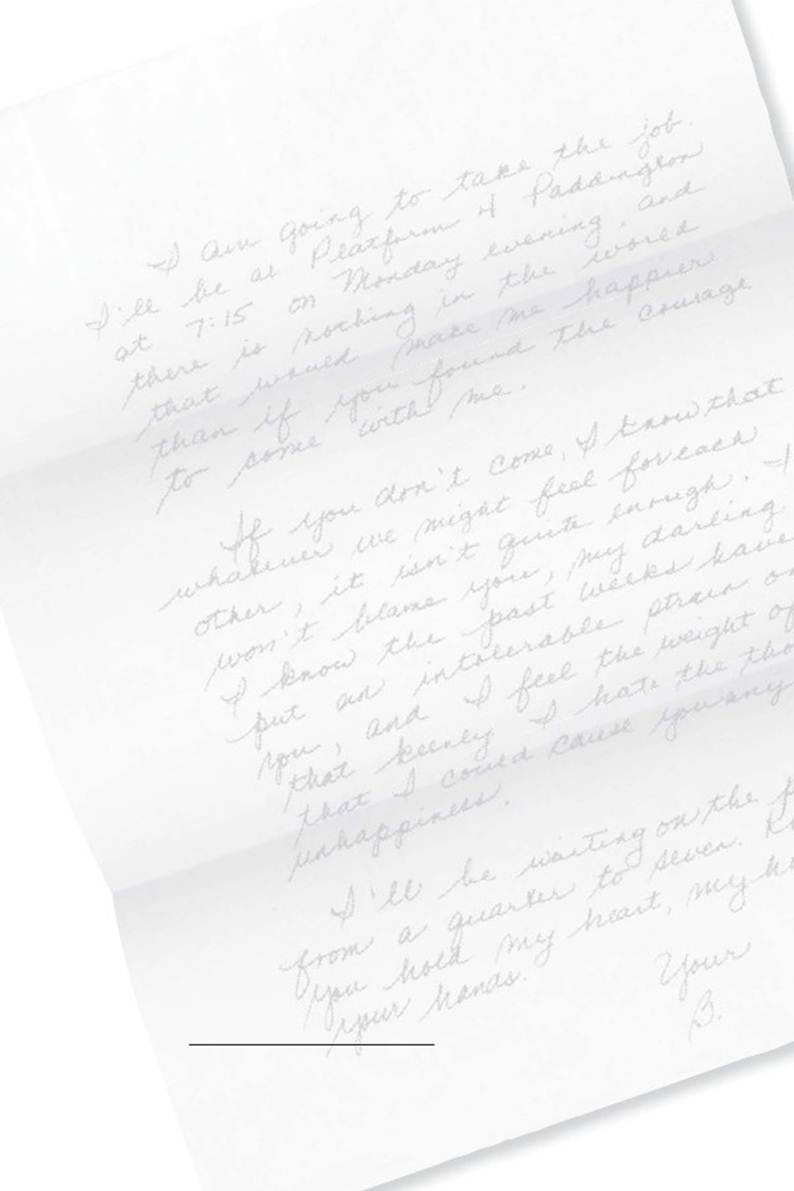 I am going to take the job.
I'll be at Platform 4 Paddington
at 7:15 on Monday evening, and
there is nothing in the world
that would make me happier
than if you found the courage
to come with me.
If you don't come, I know that
whatever we might feel for each
other, it isn't quite enough. I
won't blame you, my darling
I know the past weeks have
put an intolerable strain on
you, and I feel the weight of
that keenly I hate the
that I could cause you any
unhappiness.
I'll be waiting on the
from a quarter to seven.
you hold my heart, my
your hands.
Your
B.